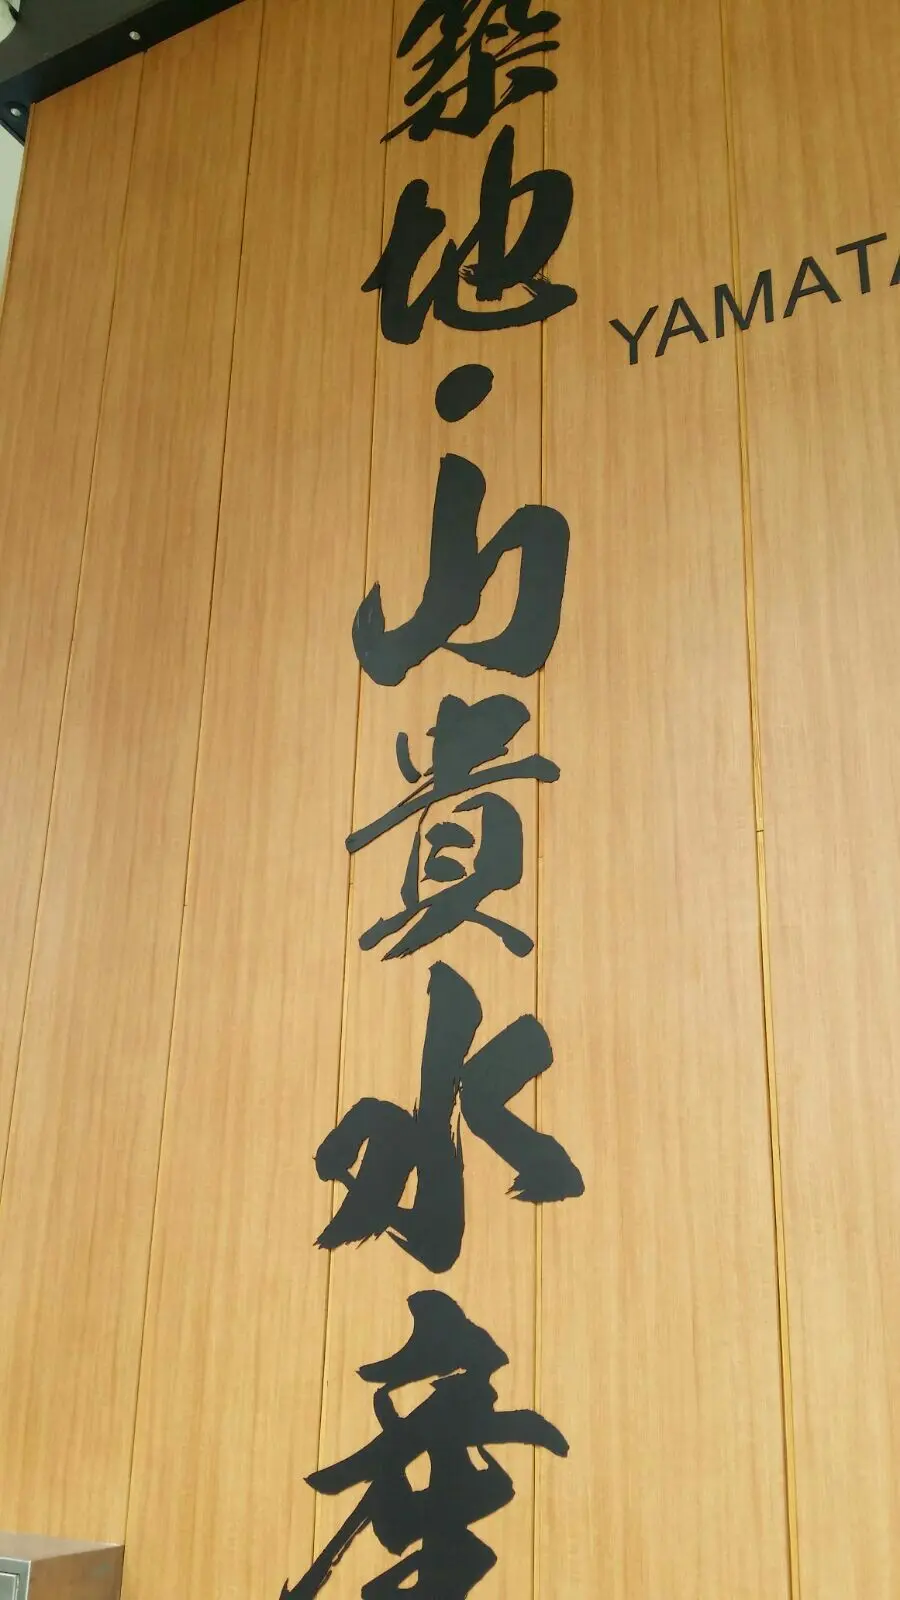 築地・山貴水産
YAMATA